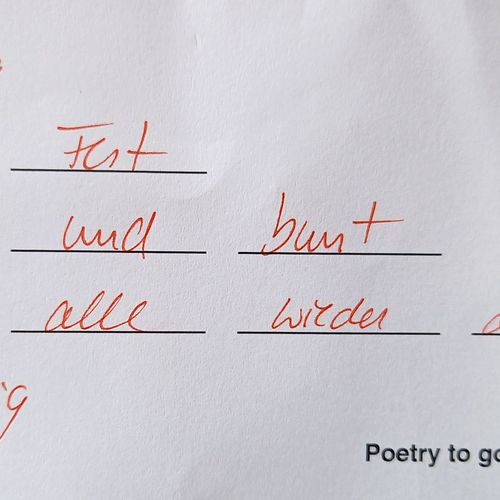 Fest
und bunt
alle wieder
ig
Poetry to go